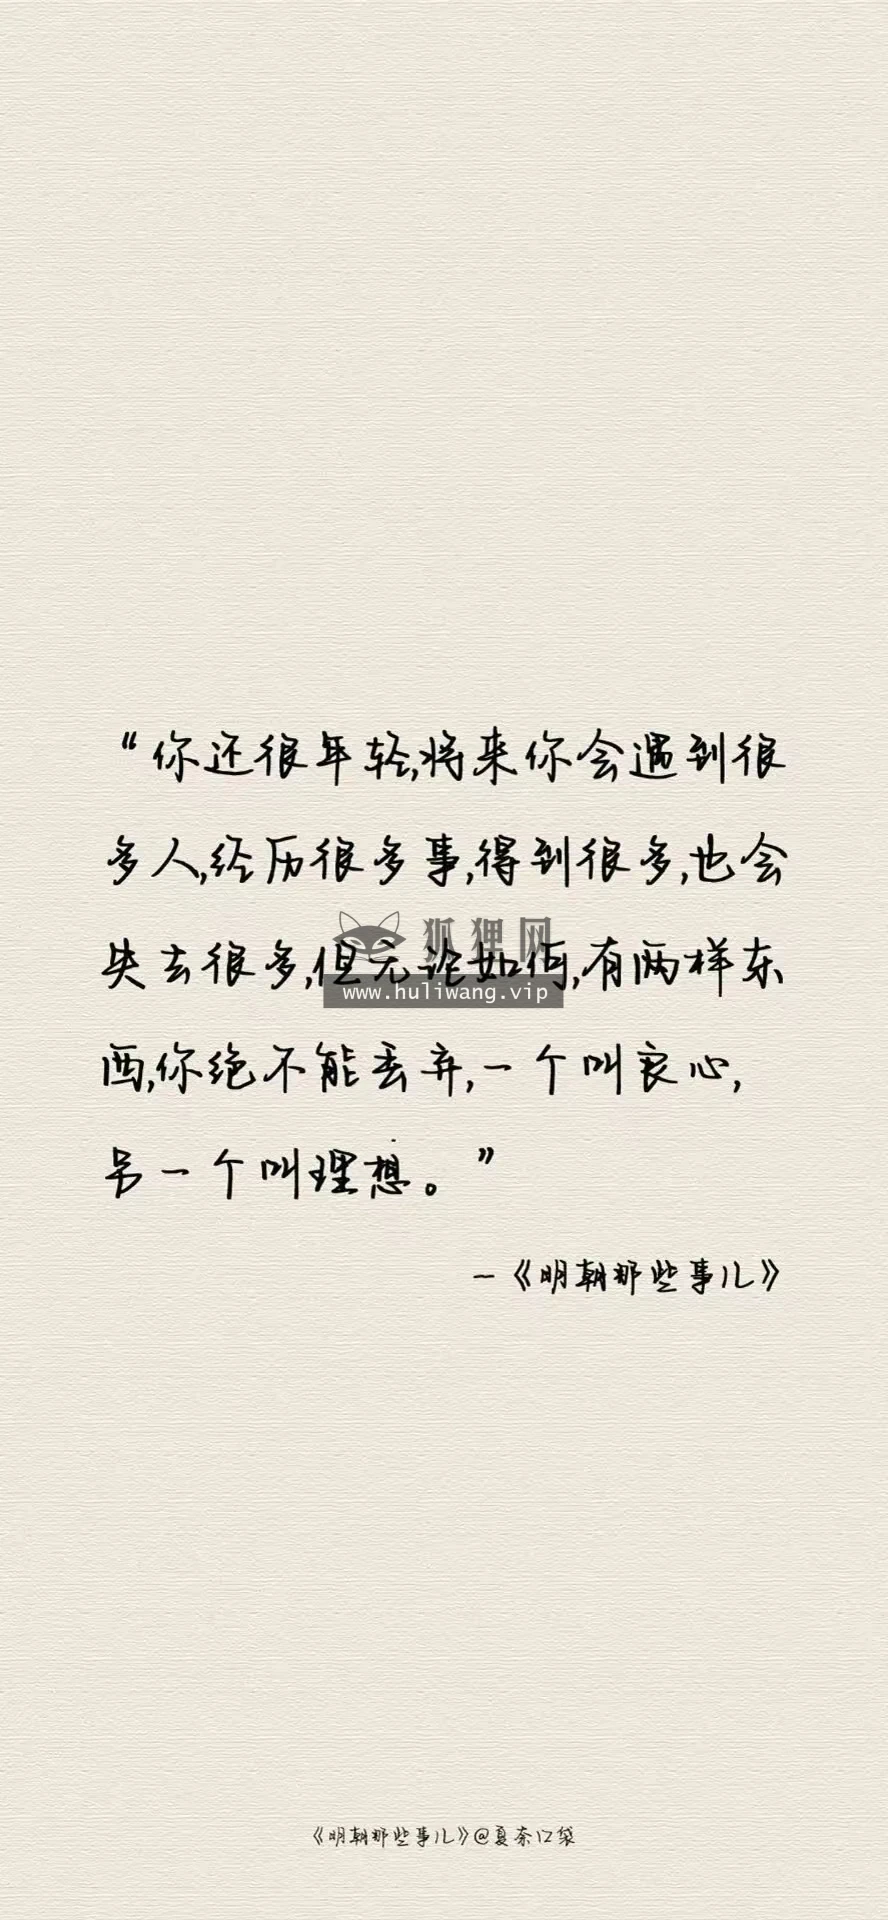 “你还很年轻,将来你会遇到很
多人,经历很多事,得到很多,也会
狐狸网
失去很多,但无论如何,有两样东
www.huliwang.vip
西,你绝不能丢弃,一个叫良心,
另一个叫理想。”
—《明朝那些事儿》
《明朝那些事儿》@夏奈口袋